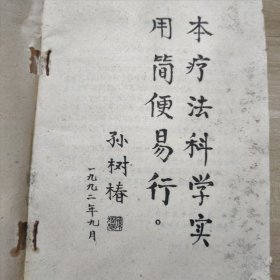 本疗法科学实
用简便易行。
孙树椿
一九九二年九月